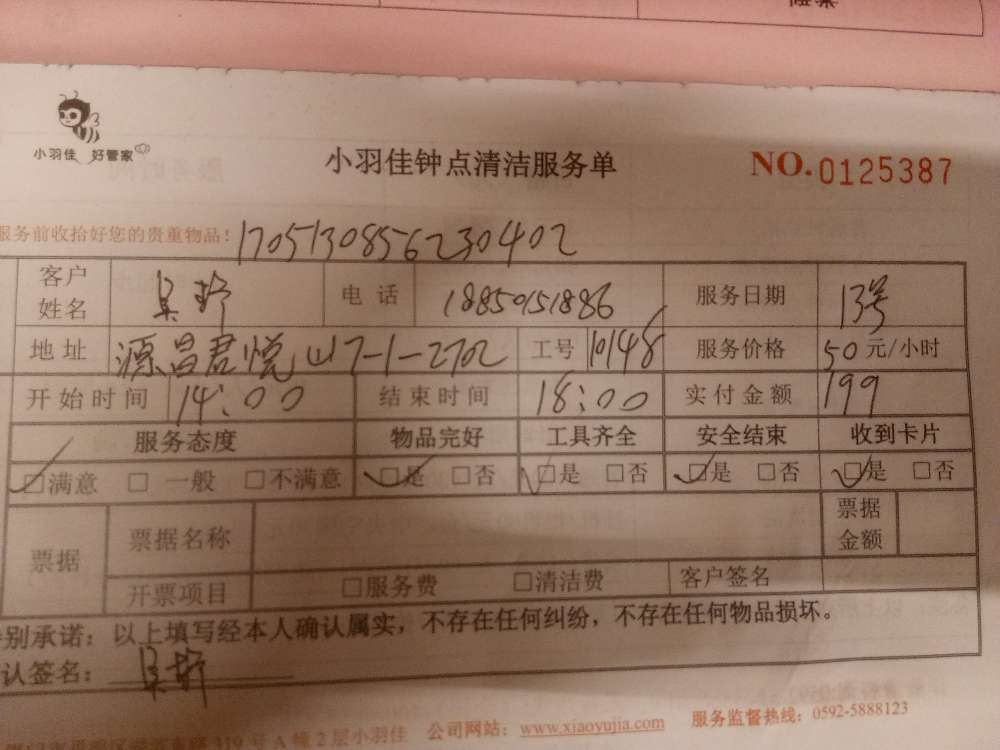 小羽佳 好管家
小羽佳钟点清洁服务单
NO.0125387
服务前收拾好您的贵重物品!
1705130856230402
客户姓名 吴 电话 18850151886 服务日期 13号
地址 源昌君悦山7-1-2702 工号 10148 服务价格 50元/小时
开始时间 14:00 结束时间 18:00 实付金额 199
服务态度 物品完好 工具齐全 安全结束 收到卡片
□满意 □一般 □不满意 □是 □否 □是 □否 □是 □否 □是 □否
票据 票据名称 票据金额
开票项目 □服务费 □清洁费 客户签名
别承诺：以上填写经本人确认属实，不存在任何纠纷，不存在任何物品损坏。
认签名： 吴
319号A幢2层小羽佳 公司网站：www.xiaoyujia.com 服务监督热线：0592-5888123